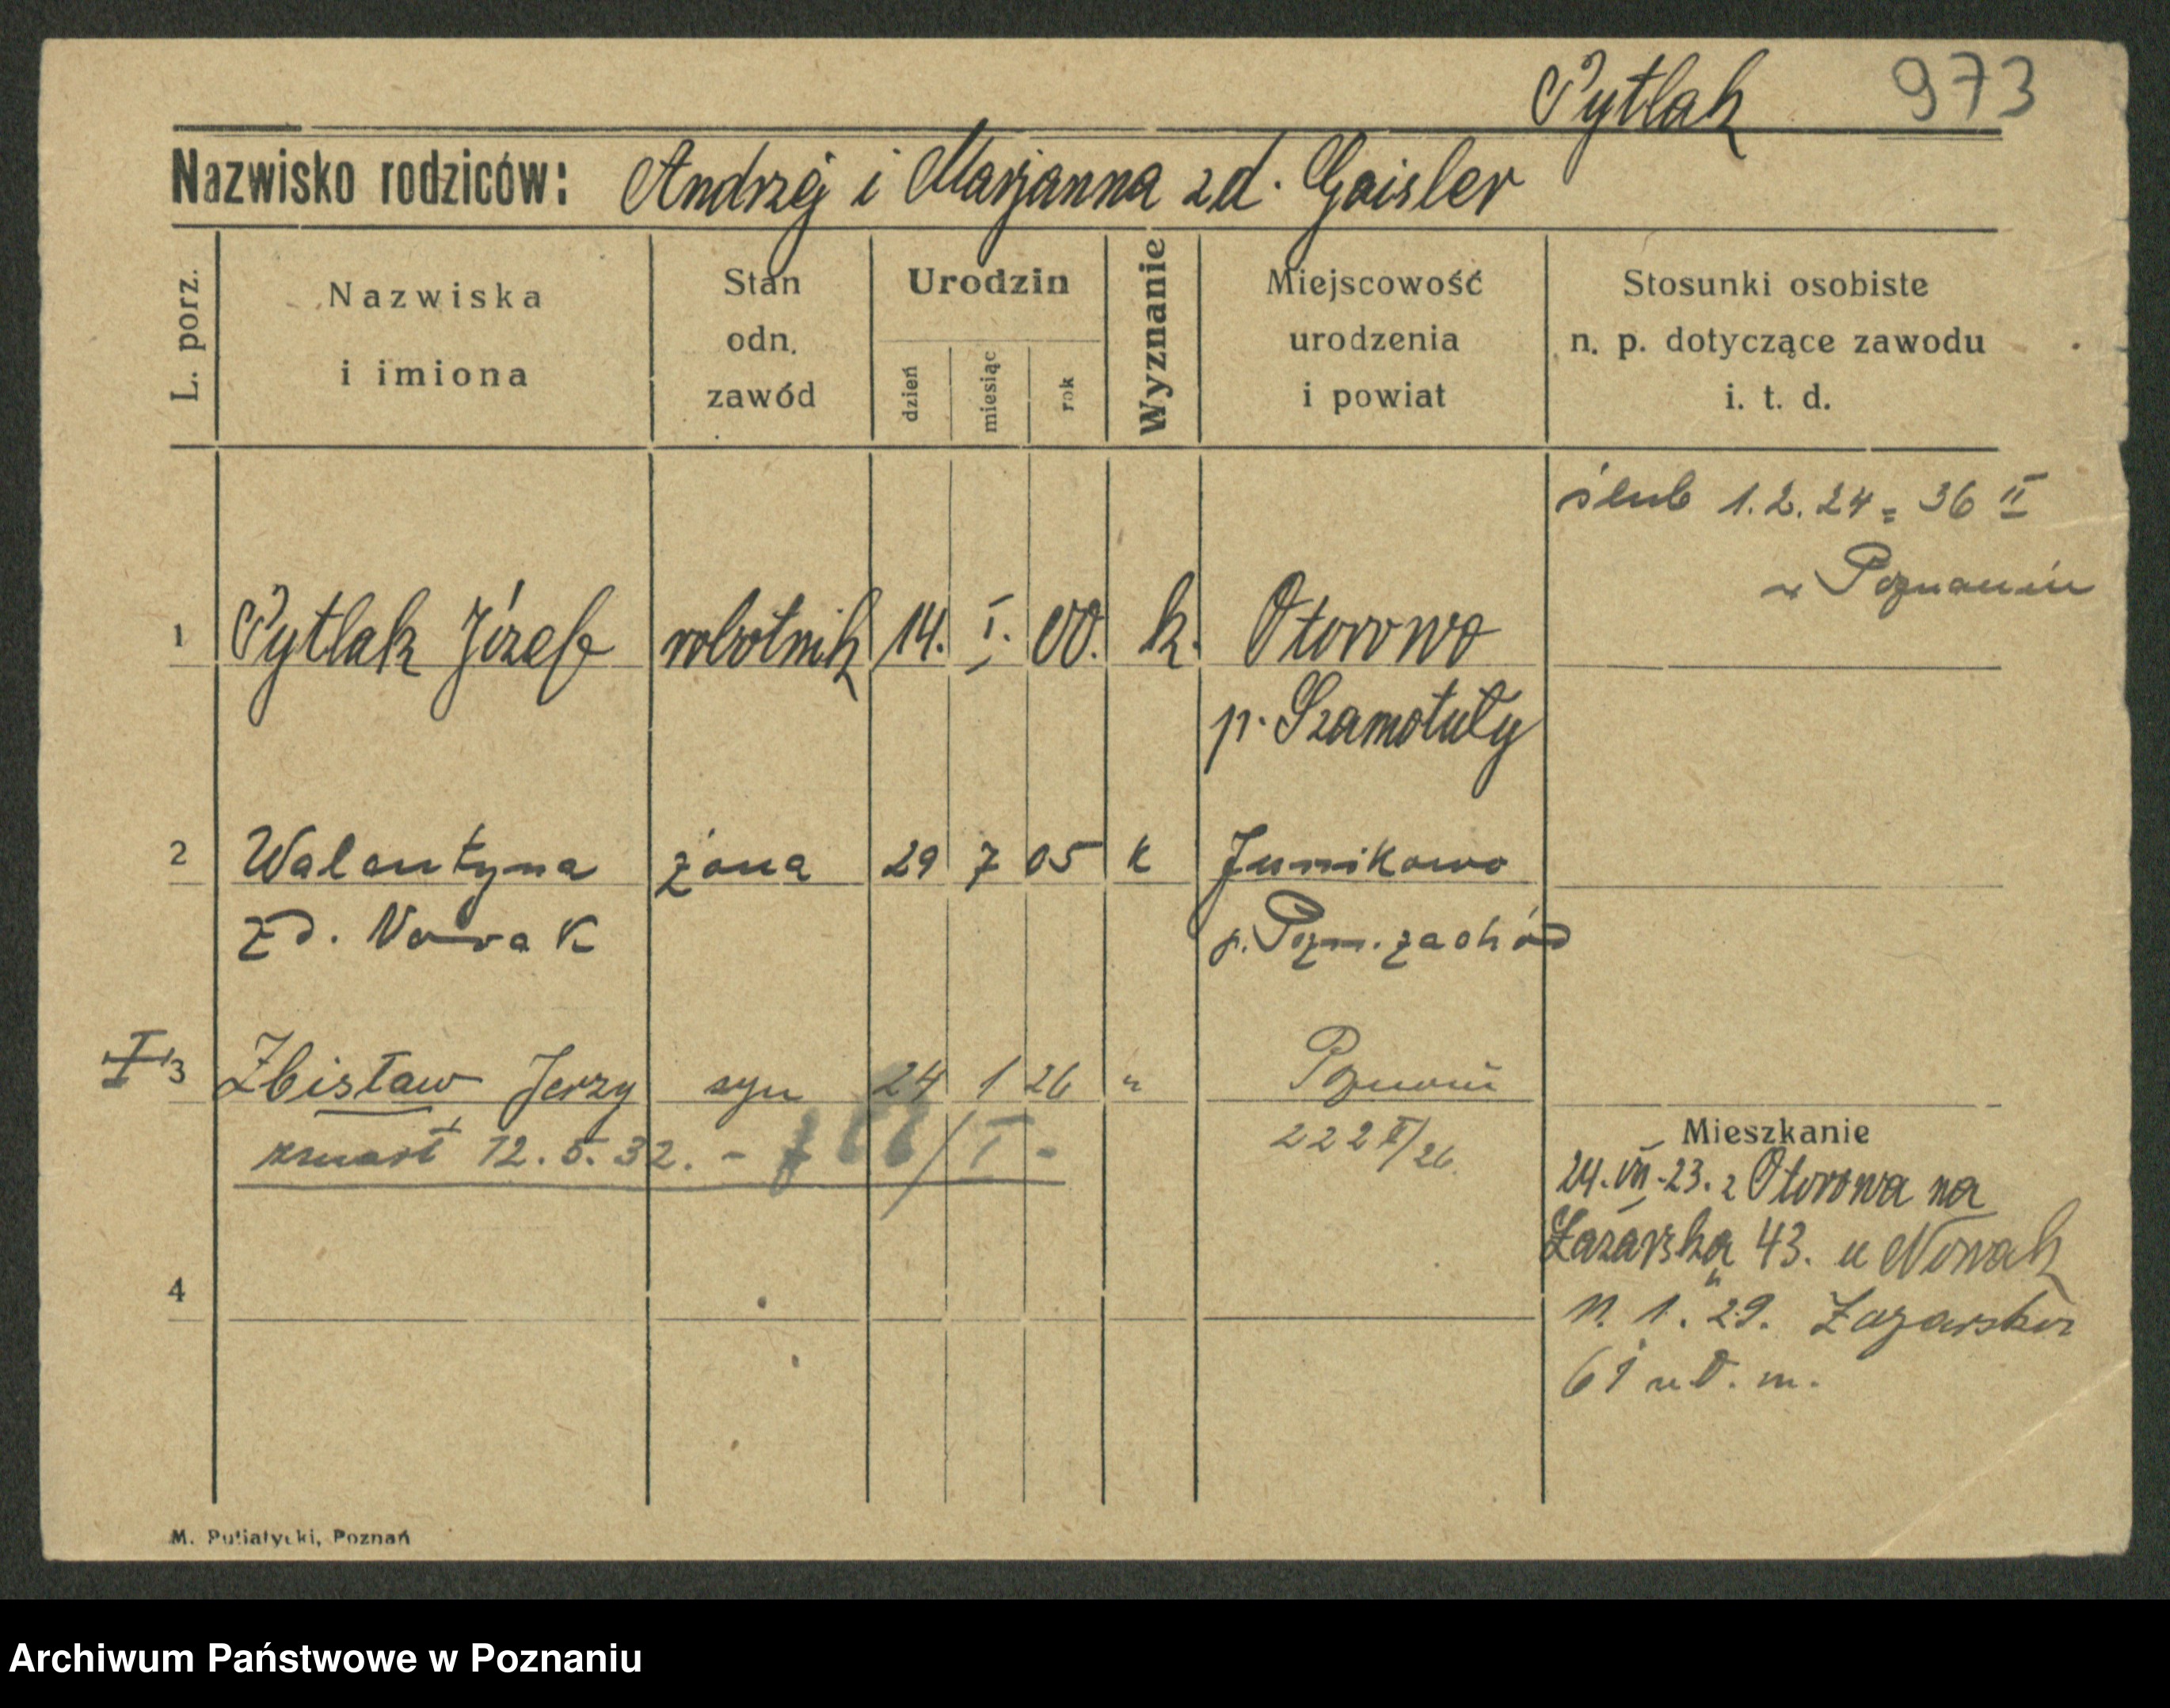 Pytlak 973
Nazwisko rodziców: Andrzej i Marjanna zd. Gaisler
L. porz.
Nazwiska
i imiona
Stan
odn.
zawód
Urodzin
dzień
miesiąc
rok
Wyznanie
Miejscowość
urodzenia
i powiat
Stosunki osobiste
n. p. dotyczące zawodu
i. t. d.
ślub 1.2.24 = 36 II
w Poznaniu
1 Pytlak Józef robotnik 14. I. 00. k. Otorowo
p. Szamotuły
2 Walentyna żona 29 7 05 k Junikowo
zd. Nowak p. Pozn. zachód
I 3 Zbisław Jerzy syn 24 1 26 " Poznań
zmarł 12.5.32. - /I - 222 II/26.
Mieszkanie
24.VII.23. z Otorowa na
Łazarska 43. u Nowak
11.1.29. Łazarska
61 w. m.
4
M. Putiatycki, Poznań
Archiwum Państwowe w Poznaniu